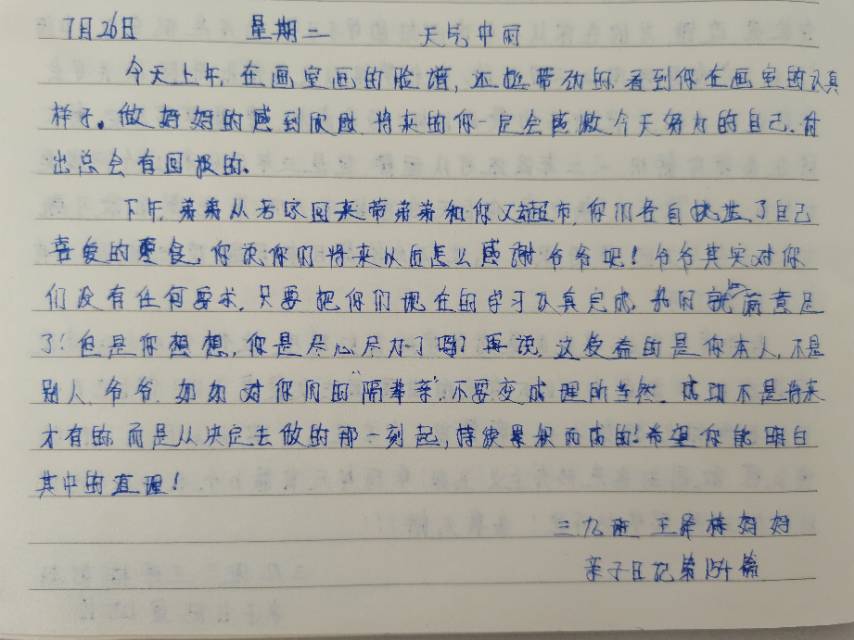 7月26日 星期二 天气中雨
今天上午,在画室画的脸谱,还挺带劲的.看到你在画室的认真
样子。做妈妈的感到欣慰.将来的你一定会感激今天努力的自己.付
出总会有回报的.
下午,爷爷从老家回来带弟弟和你又超市,你们各自挑选了自己
喜爱的零食,你说,你们将来以后怎么感谢爷爷吧!爷爷其实对你
们没有任何要求,只要把你们现在的学习认真完成,他就心满意足
了!但是你想想,你是尽心尽力了吗?再说,这受益的是你本人,不是
别人,爷爷奶奶对你们的"隔辈亲".不要变成理所当然.成功不是将来
才有的.而是从决定去做的那一刻起,持续累积而成的!希望你能明白
其中的真理!
三九班 王泽栋妈妈
亲子日记第154篇